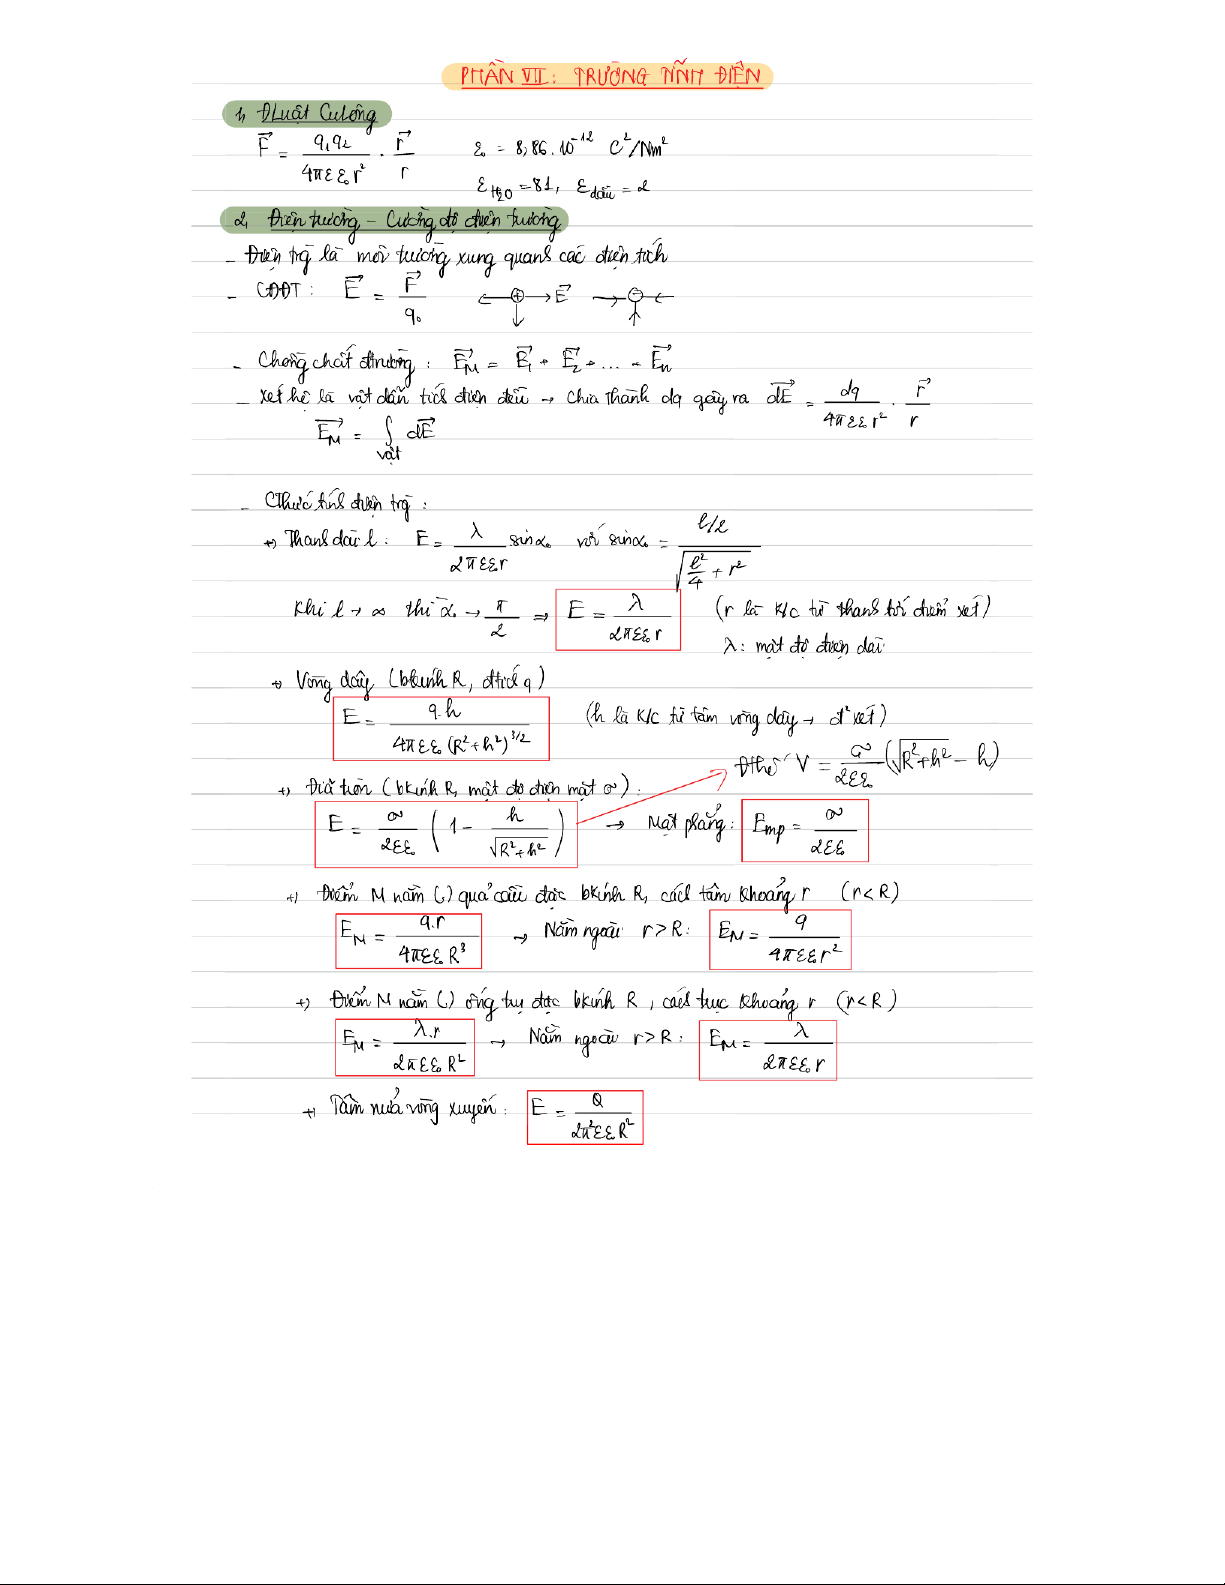 PHẦN VII: TRƯỜNG TĨNH ĐIỆN
1, ĐLuật Culông
F⃗ = q₁q₂/(4πεε₀r²) · r⃗/r   ε₀ = 8,86.10⁻¹² C²/Nm²
ε_H₂O = 81, ε_dầu = 2
2, Điện trường – Cường độ điện trường
- Điện trg là môi trường xung quanh các điện tích
- CĐĐT: E⃗ = F⃗/q₀   + → E⃗   −
- Chồng chất đtrường: E⃗_M = E⃗₁ + E⃗₂ + ... + E⃗ₙ
- Xét hệ là vật dẫn tích điện đều → chia thành dq gây ra dE⃗ = dq/(4πεε₀r²) · r⃗/r
E⃗_M = ∫_vật dE⃗
- CThức tính điện trg:
+) Thanh dài l: E = λ/(2πεε₀r) sinα₀ với sinα₀ = (l/2)/√(l²/4 + r²)
Khi l → ∞ thì α₀ → π/2 ⇒ E = λ/(2πεε₀r) (r là K/c từ thanh tới điểm xét)
λ: mật độ điện dài
+) Vòng dây (bkính R, đtích q)
E = q.h/(4πεε₀(R²+h²)^3/2) (h là K/c từ tâm vòng dây → đ² xét)
Đthế V = σ/(2εε₀) (√(R²+h²) − h)
+) Đĩa tròn (bkính R, mật độ điện mặt σ):
E = σ/(2εε₀) (1 − h/√(R²+h²)) → Mặt phẳng: E_mp = σ/(2εε₀)
+) Điểm M nằm (.) quả cầu đặc bkính R, cách tâm khoảng r (r < R)
E_M = q.r/(4πεε₀R³) → Nằm ngoài r > R: E_M = q/(4πεε₀r²)
+) Điểm M nằm (.) ống trụ đặc bkính R, cách trục khoảng r (r < R)
E_M = λ.r/(2πεε₀R²) → Nằm ngoài r > R: E_M = λ/(2πεε₀r)
+) Tâm nửa vòng xuyến: E = Q/(2π²εε₀R²)